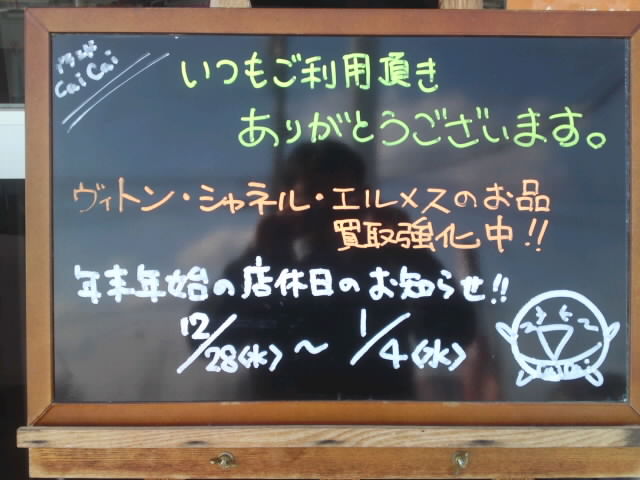 CaiCai
いつもご利用頂き
ありがとうございます。
ヴィトン・シャネル・エルメスのお品
買取強化中!!
年末年始の店休日のお知らせ!!
12/28(水)～1/4(水)
CaiCai